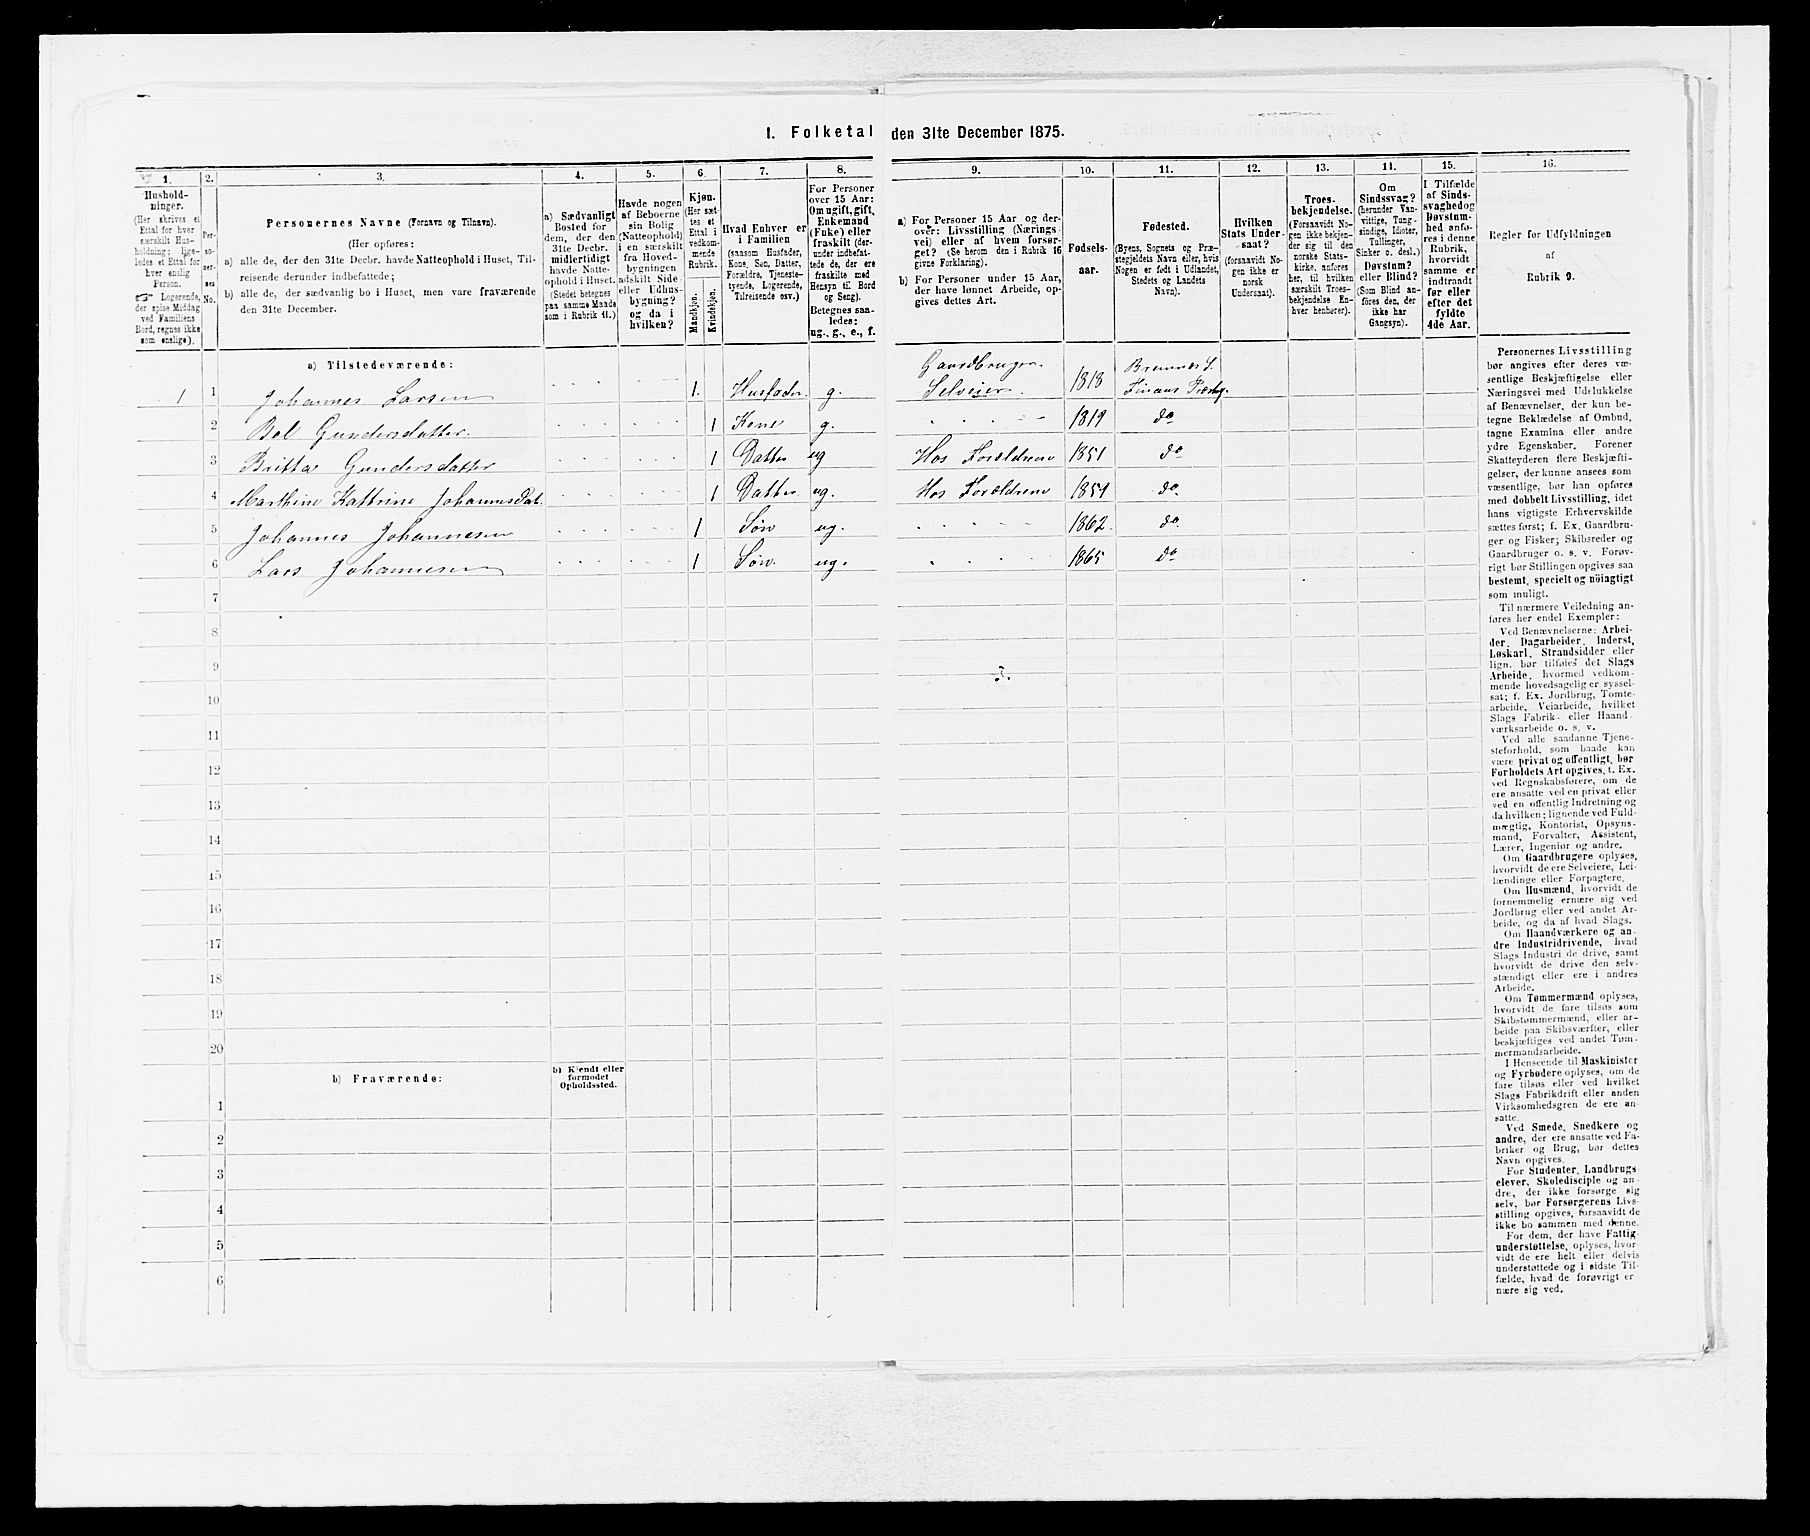 1. Folketal den 31te December 1875.
1.
2.
3.
4.
5.
6.
7.
8.
9.
10.
11.
12.
13.
14.
15.
16.
Hushold-
ninger.
(Her skrives et
Ettal for hver
særskilt Hus-
holdning; lige-
ledes et Ettal for
hver enslig
Person.
☞ Logerende,
der spise Middag
ved Familiens
Bord, regnes ikke
som enslige).
Per-
so-
ner-
nes
No.
Personernes Navne (Fornavn og Tilnavn).
(Her opføres:
a) alle de, der den 31te Decbr. havde Natteophold i Huset, Til-
reisende derunder indbefattede;
b) alle de, der sædvanlig bo i Huset, men vare fraværende
den 31te December.
a) Sædvanligt
Bosted for
dem, der den
31te Decbr.
midlertidigt
havde Natte-
ophold i Huset.
(Stedet betegnes
paa samme Maade
som i Rubrik 11.)
Havde nogen
af Beboerne
sin Bolig
(Natteophold)
i en særskilt
fra Hoved-
bygningen
adskilt Side-
eller Udhus-
bygning?
og da i
hvilken?
Kjøn.
(Her sæt-
tes et
Ettal i
vedkom-
mende
Rubrik.
Mandkjøn.
Kvindekjøn.
Hvad Enhver er
i Familien
(saasom Husfader,
Kone, Søn, Datter,
Forældre, Tjeneste-
tyende, Logerende,
Tilreisende osv.)
For Personer
over 15 Aar:
Om ugift, gift,
Enkemand
(Enke) eller
fraskilt (der-
under indbefat-
tede de, der ere
fraskilte med
Hensyn til Bord
og Seng).
Betegnes saa-
ledes:
ug., g., e., f.
a) For Personer 15 Aar og der-
over: Livsstilling (Nærings-
vei) eller af hvem forsør-
get? (Se herom den i Rubrik 16
givne Forklaring).
b) For Personer under 15 Aar,
der have lønnet Arbeide, op-
gives dettes Art.
Fødsels-
aar.
Fødested.
(Byens, Sognets og Præ-
stegjeldets Navn eller, hvis
Nogen er født i Udlandet,
Stedets og Landets
Navn).
Hvilken
Stats Under-
saat?
(forsaavidt No-
gen ikke er
norsk
Undersaat).
Troes-
bekjendelse.
(Forsaavidt No-
gen ikke bekjen-
der sig til den
norske Stats-
kirke, anføres
her, til hvilken
særskilt Troes-
bekjendelse En-
hver henhører).
Om
Sindssvag?
(herunder Van-
vittige, Tung-
sindige, Idioter,
Tullinger,
Sinker o. desl.)
Døvstum?
eller Blind?
(Som Blind an-
føres den, der
ikke har
Gangsyn).
I Tilfælde
af Sinds-
svaghed og
Døvstum-
hed anfø-
res i denne
Rubrik,
hvorvidt
samme er
indtraadt
før eller
efter det
fyldte
4de Aar.
Regler for Udfyldningen
af
Rubrik 9.
a) Tilstedeværende:
1 1 Johannes Larsen 1. Husfader g. Gaardbruger Selveier 1818 Bremnes S. Finaas Præstg.
2 Bel Gundersdatter. 1 Kone g. 1819 do
3 Britta Gundersdatter 1 Datter ug Hos Forældrene 1851 do
4 Marthine Kattrine Johannesdat. 1 Datter ug. Hos Forældrene 1859 do
5 Johannes Johannesen 1 Søn ug. 1862. do
6 Lars Johannesen 1 Søn. ug. 1865 do
7
8
9
10
11
12
13
14
15
16
17
18
19
20
b) Fraværende:
b) Kjendt eller
formodet
Opholdssted.
1
2
3
4
5
6
Personernes Livsstilling
bør angives efter deres væ-
sentlige Beskjæftigelse eller
Næringsvei med Udelukkelse
af Benævnelser, der kun be-
tegne Beklædelse af Ombud,
tagne Examina eller andre
ydre Egenskaber. Forener
Skatteyderen flere Beskjæfti-
gelser, der kunne ansees som
væsentlige, bør han opføres
med dobbelt Livsstilling, idet
hans vigtigste Erhvervskilde
sættes først; f. Ex. Gaardbru-
ger og Fisker; Skibsreder og
Gaardbruger o. s. v. Forøv-
rigt bør Stillingen opgives saa
bestemt, specielt og nöiagtigt
som muligt.
Til nærmere Veiledning an-
føres her endel Exempler:
Ved Benævnelserne: Arbei-
der, Dagarbeider, Inderst,
Løskarl, Strandsidder eller
lign. bør tilføies det Slags
Arbeide, hvormed vedkom-
mende hovedsagelig er syssel-
sat; f. Ex. Jordbrug, Tomte-
arbeide, Veiarbeide, hvilket
Slags Fabrik- eller Haand-
værksarbeide o. s. v.
Ved alle saadanne Tjene-
steforhold, som baade kan
være privat og offentligt, bør
Forholdets Art opgives, f. Ex.
ved Regnskabsførere, om de
ere ansatte ved en privat eller
ved en offentlig Indretning og
da hvilken; lignende ved Fuld-
mægtig, Kontorist, Opsyns-
mand, Forvalter, Assistent,
Lærer, Ingeniør og andre.
Om Gaardbrugere oplyses,
hvorvidt de ere Selveiere, Lei-
lændinge eller Forpagtere.
Om Husmænd, hvorvidt de
fornemmelig ernære sig ved
Jordbrug eller ved andet Ar-
beide, og da af hvad Slags.
Om Haandværkere og an-
dre Industridrivende, hvad
Slags Industri de drive, samt
hvorvidt de drive den selv-
stændigt eller ere i andres
Arbeide.
Om Tømmermænd oplyses,
hvorvidt de fare tilsøs som
Skibstømmermænd, eller ar-
beide paa Skibsværfter, eller
beskjæftiges ved andet Tøm-
mermandsarbeide.
I Henseende til Maskinister
og Fyrbødere oplyses, om de
fare tilsøs eller ved hvilket
Slags Fabrikdrift eller anden
Virksomhedsgren de ere an-
satte.
Ved Smede, Snedkere og
andre, der ere ansatte ved Fa-
briker og Brug, bør dettes
Navn opgives.
For Studenter, Landbrugs-
elever, Skoledisciple og an-
dre, der ikke forsørge sig
selv, bør Forsørgerens Livs-
stilling opgives, forsaavidt de
ikke bo sammen med denne.
For dem, der have Fattig-
understøttelse, oplyses, hvor-
vidt de ere helt eller delvis
understøttede og i sidste Til-
fælde, hvad de forøvrigt er-
nære sig ved.